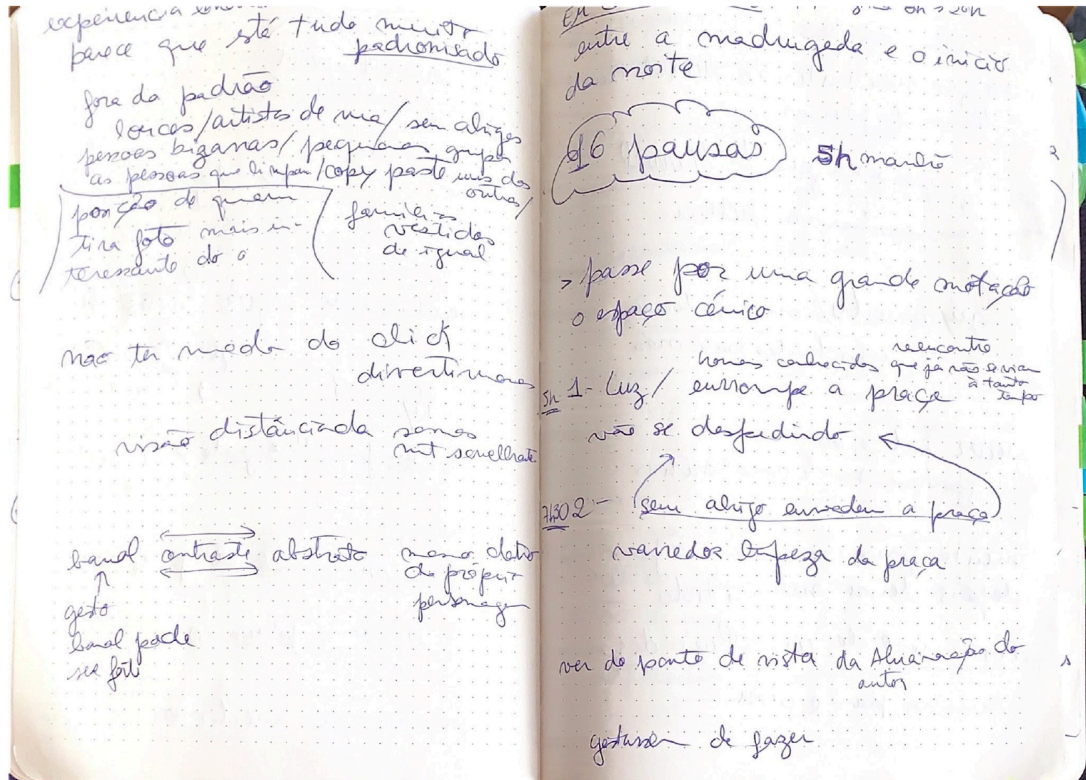 experiencia
parece que está tudo muito
padronisado
fora da padrão
loucos/artistas de rua/sem abrigos
pessoas bizarras/pequenos grupos
as pessoas que limpam/copy paste uns dos
outros/
posição de quem
tira foto mais in-
teressante do o
familias
vestidas
de igual
nao ter medo do click
divertirmonos
visão distânciada somos
mt semelhante
banal contraste abstrato mesmo dentro
do próprio
personagem
gesto
banal pode
ser
entre a madrugada e o inicio
da noite
6 pausas
5h manhã
> passe por uma grande mutação
o espaço cénico
reencontro
homens conhecidos que já não se viam
à tanto
tempo
5h 1- Luz / enrrompe a praça
vão se despedindo
7h30 2- sem abrigo envadem a praça
varredor limpeza da praça
ver do ponto de vista da do
autor
de fazer